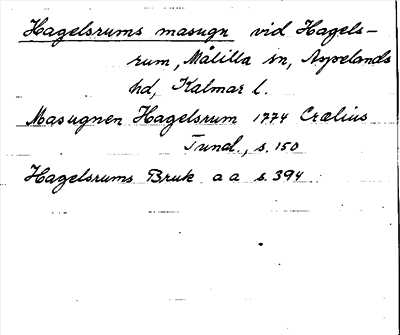 Hagelsrums masugn vid Hagels-
rum, Målilla sn, Aspelands
hd, Kalmar l.
Masugnen Hagelsrum 1774 Cræelius
Tund., s. 150
Hagelsrums Bruk a a s. 394